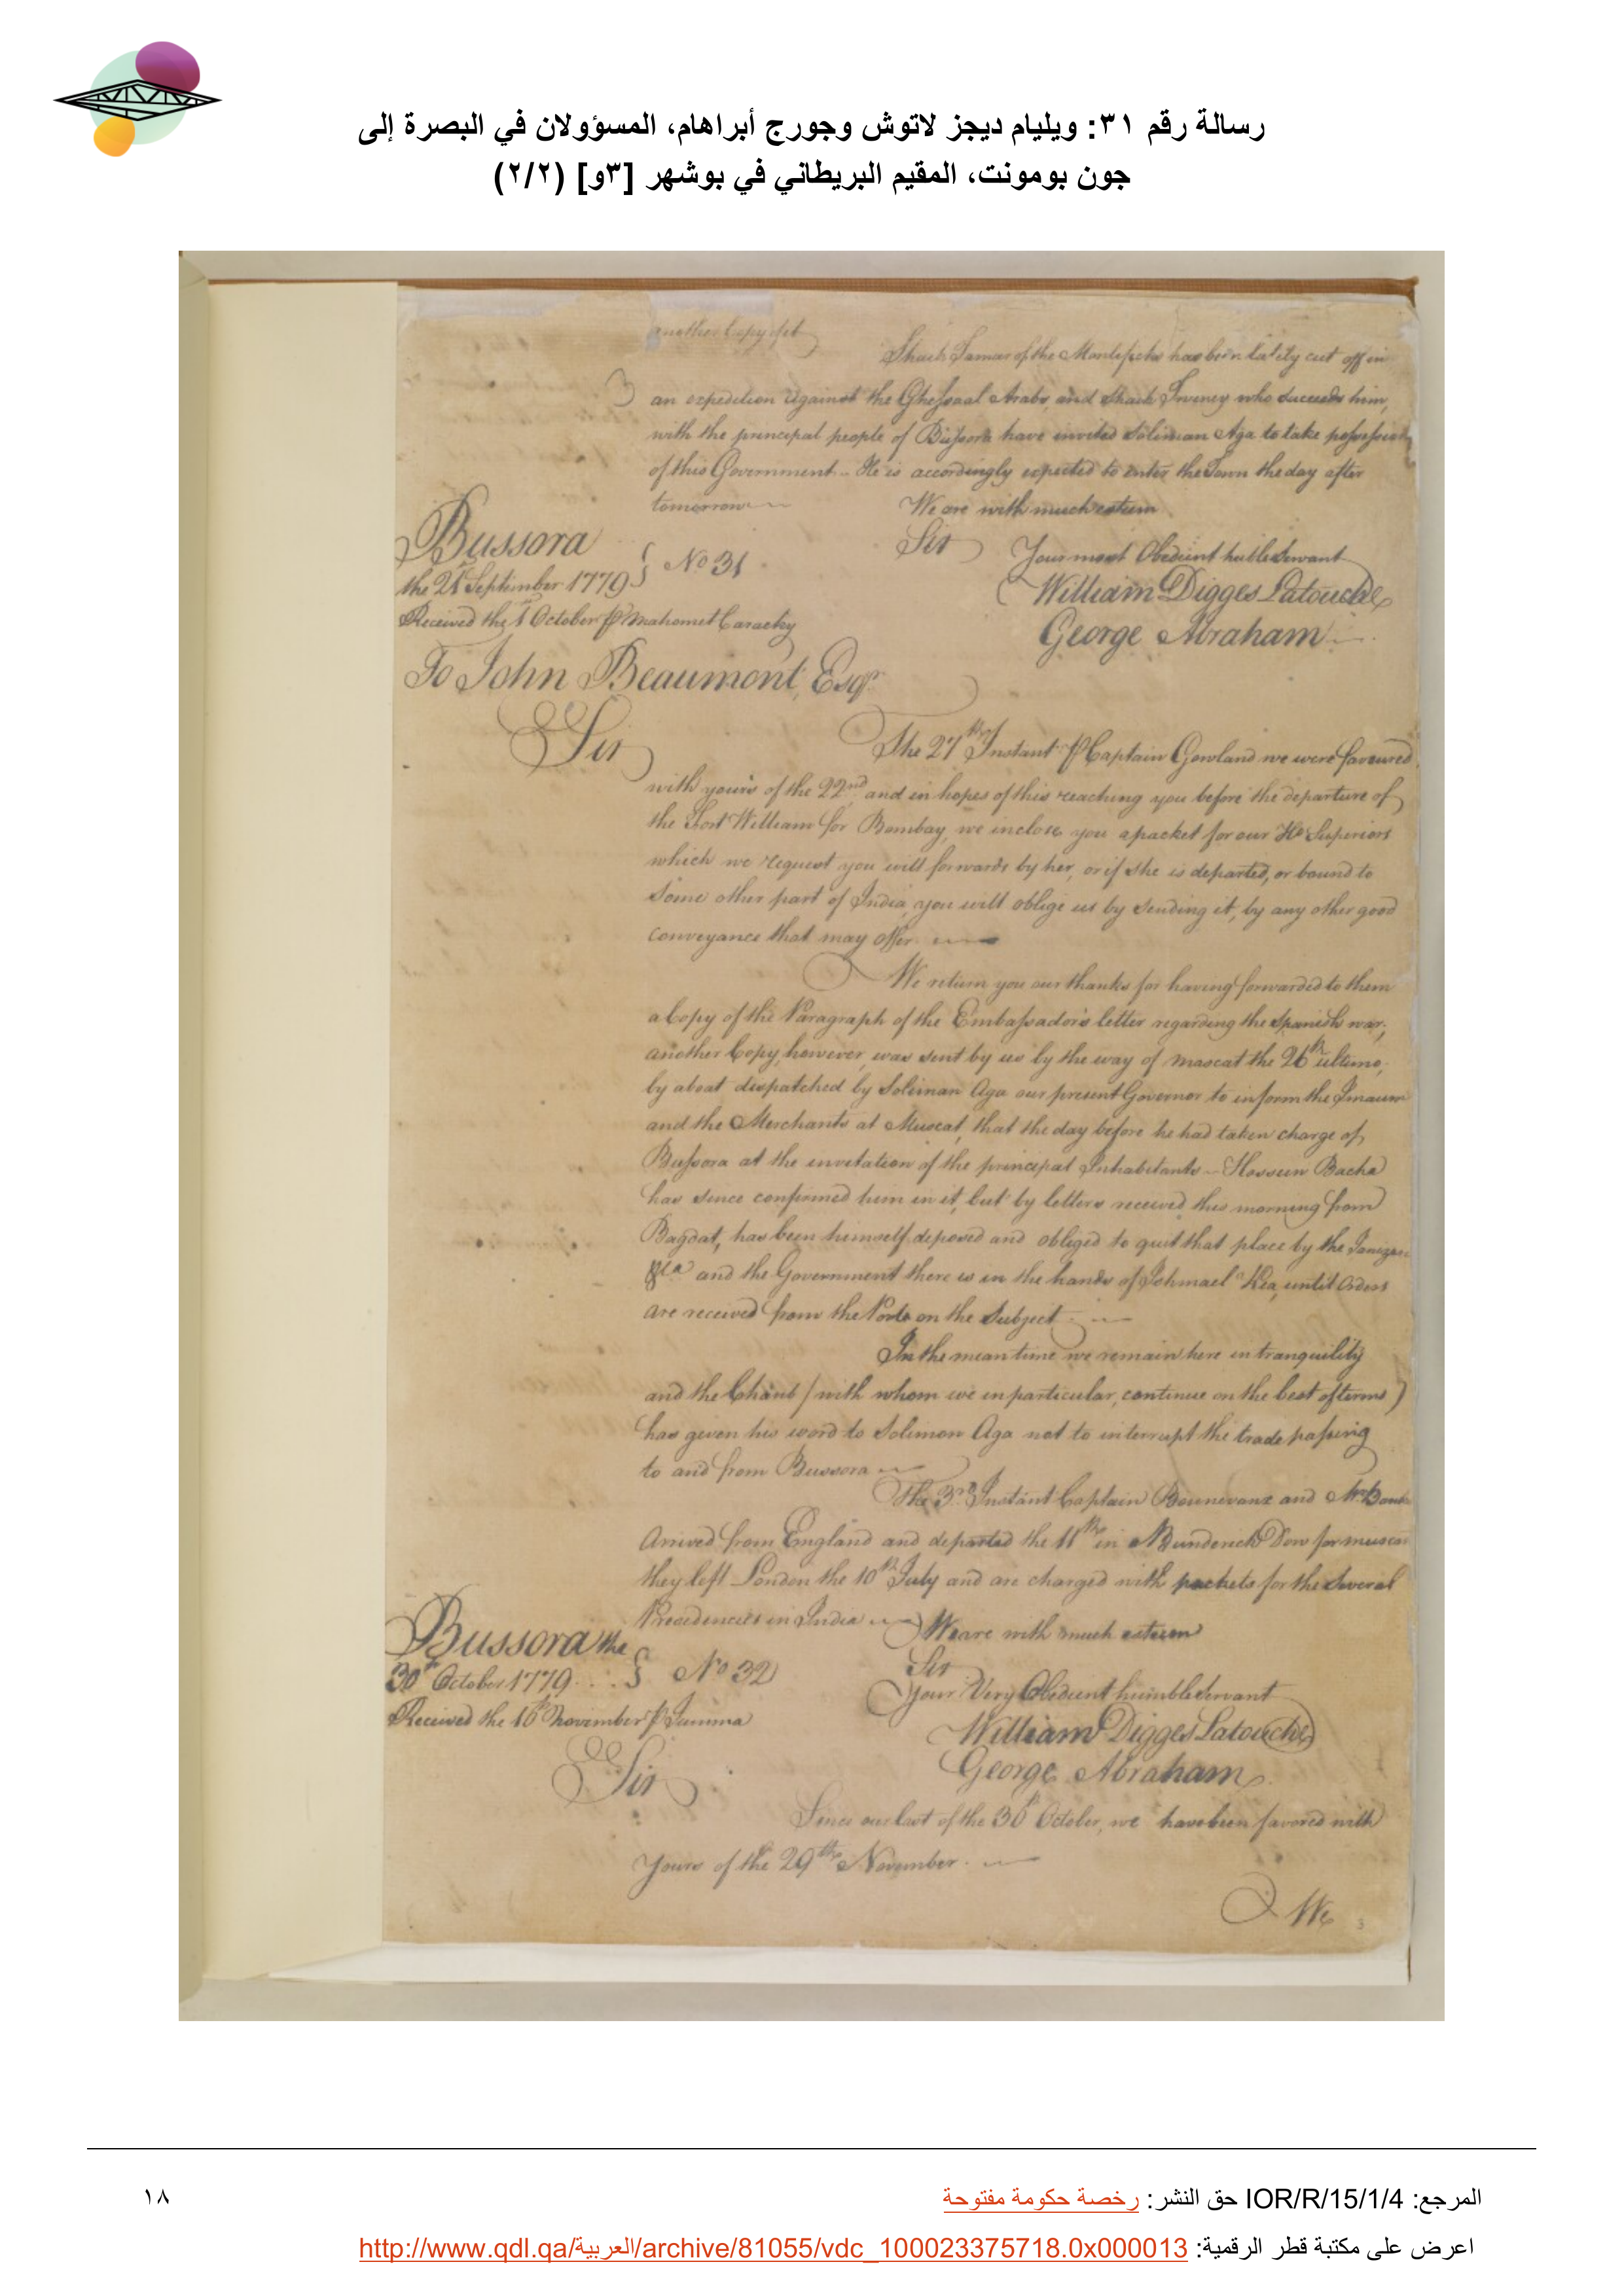 رسالة رقم ٣١: ويليام ديجز لاتوش وجورج أبراهام، المسؤولان في البصرة إلى
جون بومونت، المقيم البريطاني في بوشهر [٣و] (٢/٢)
another Copy of it
Shaik Tamar of the Montificks has been lately cut off in
an expedition against the Ghessaal Arabs, and Shaik Twiney who succeeds him,
with the principal people of Bussora have invited Soliman Aga to take possession
of this Government - He is accordingly expected to enter the Town the day after
tomorrow
We are with much esteem
Sir
Your most Obedient huble Servant
William Digges Latouche
George Abraham
Bussora
the 21st September 1779
No 31
Received the 1 October p Mahomet
To John Beaumont, Esqr
Sir
The 27th Instant p Captain Gowland we were favoured
with yours of the 22nd and in hopes of this reaching you before the departure of
the Fort William for Bombay, we inclose you a packet for our Hble Superiors
which we request you will forwards by her, or if she is departed, or bound to
some other part of India, you will oblige us by sending it, by any other good
conveyance that may offer.
We return you our thanks for having forwarded to them
a Copy of the Paragraph of the Embassador's letter regarding the Spanish war;
another Copy, however, was sent by us by the way of mascat the 26th ultimo,
by a boat dispatched by Soliman Aga our present Governor to inform the Imaum
and the Merchants at Muscat, that the day before he had taken charge of
Bussora at the invitation of the principal Inhabitants - Hossein Bacha
has since confirmed him in it, but by letters received this morning from
Bagdat, has been himself deposed and obliged to quit that place by the
&ca and the Government there is in the hands of Ishmael Kea, until Orders
are received from the Porte on the Subject
In the mean time we remain here in tranquility
and the Chaub (with whom we in particular, continue on the best of terms)
has given his word to Soliman Aga not to interrupt the trade passing
to and from Bussora
The 3rd Instant Captain and Mr
Arrived from England and departed the 11th in Dow for
they left London the 10th July and are charged with packets for the several
Presidencies in India
We are with much esteem
Sir
Your Very Obedient humble Servant
William Digges Latouche
George Abraham
Bussora the
30th October 1779
No 32
Received the 16th November p
Sir
Since our last of the 30th October, we have been favored with
Yours of the 29th November.
We
3
المرجع: IOR/R/15/1/4 حق النشر: رخصة حكومة مفتوحة
١٨
اعرض على مكتبة قطر الرقمية: http://www.qdl.qa/العربية/archive/81055/vdc_100023375718.0x000013